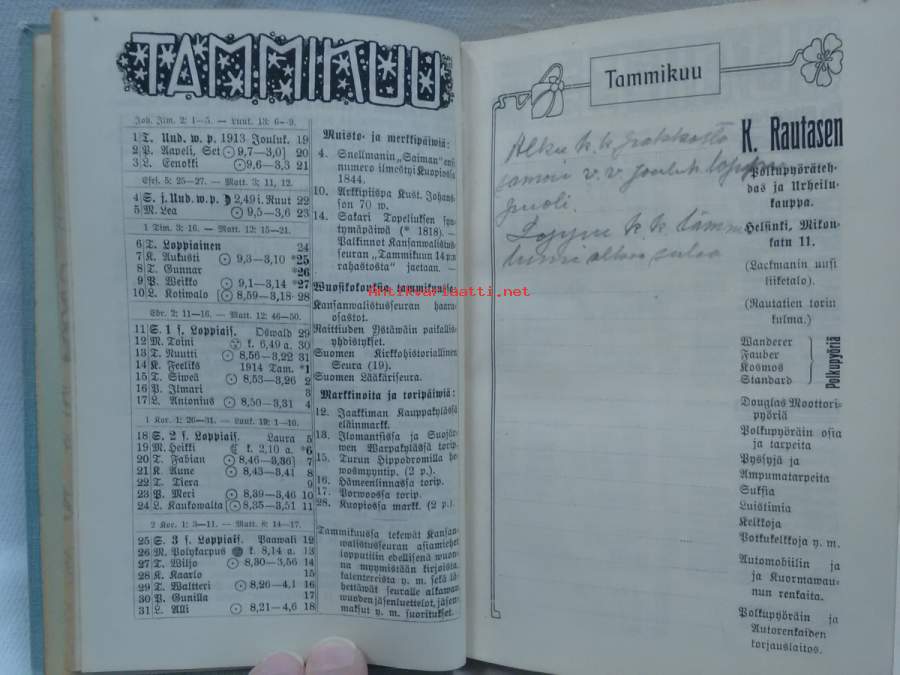 TAMMIKUU
Joh. Ilm. 2: 1—5. — Luuk. 13: 6—9.
1 T. Uud. w. p. 1913 Jouluk. 19
2 P. Aapeli, Set 9,7—3,0 20
3 L. Eenokki 9,6—3,3 21
Efes. 5: 25—27. — Matt. 3: 11, 12.
4 S. j. Uud. w. p. 2,49 i. Ruut 22
5 M. Lea 9,5—3,6 23
1 Tim. 3: 16. — Matt. 12: 15—21.
6 T. Loppiainen 24
7 K. Aukusti 9,3—3,10 *25
8 T. Gunnar *26
9 P. Weikko 9,1—3,14 *27
10 L. Ketiwalo 8,59—3,18 28
Ebr. 2: 11—16. — Matt. 12: 46—50.
11 S. 1 s. Loppiais. Oswald 29
12 M. Toini k. 6,49 a. 30
13 T. Nuutti 8,56—3,22 31
14 K. Feeliks 1914 Tam. *1
15 T. Siweä 8,53—3,26 2
16 P. Ilmari 3
17 L. Antonius 8,50—3,31 4
1 Kor. 1: 26—31. — Luuk. 19: 1—10.
18 S. 2 s. Loppiais. Laura 5
19 M. Heikki k. 2,10 a. *6
20 T. Fabian 8,46—3,36 7
21 K. Aune 8,43—3,41 8
22 T. Tiera 9
23 P. Meri 8,39—3,46 10
24 L. Kaukowalta 8,35—3,51 11
2 Kor. 1: 3—11. — Matt. 8: 14—17.
25 S. 3 s. Loppiais. Paawali 12
26 M. Polykarpus k. 8,14 a. 13
27 T. Wiljo 8,30—3,56 14
28 K. Kaarlo 15
29 T. Waltteri 8,26—4,1 16
30 P. Gunilla 17
31 L. Alli 8,21—4,6 18
Muisto- ja merkkipäiwiä:
4. Snellmanin „Saiman" ensi
numero ilmestyi Kuopiossa
1844.
10. Arkkipiispa Kust. Johans-
son 70 w.
14. Sakari Topeliuksen syn-
tymäpäiwä (* 1818). —
Palkinnot Kansanwalistus-
seuran „Tammikuun 14 p:n
rahastosta" jaetaan. —
Wuosikokouksia tammikuussa:
Kansanwalistusseuran haara-
osastot.
Raittiuden Ystäwäin paikallis-
yhdistykset.
Suomen Kirkkohistoriallinen
Seura (19).
Suomen Lääkäriseura.
Markkinoita ja toripäiwiä:
12. Jaakkiman Kauppakylässä
eläinmarkk.
13. Ilomantsissa ja Suojär-
wen Warpakylässä torip.
15. Turun Hippodromilla he-
wosmyynti. (2 p.).
16. Hämeenlinnassa torip.
17. Porwoossa torip.
28. Kuopiossa markk. (2 p.).
Tammikuussa tekewät Kansan-
walistusseuran asiamiehet
lopputilin edellisenä wuon-
na myymistään kirjoista,
kalentereista y. m. sekä lä-
hettäwät seuralle alkawan
wuoden jäsenluettelot, jäsen-
maksut y. m. suoritukset.
Antikvariaatti.net
Tammikuu
Alku k.k.
v.v.
puoli.
k.k.
K. Rautasen
Polkupyöräteh-
das ja Urheilu-
kauppa.
Helsinki, Mikon-
katu 11.
(Lackmanin uusi
liiketalo).
(Rautatien torin
kulma.)
Wanderer
Fauber
Kosmos
Standard
Polkupyöriä
Douglas Moottori-
pyöriä
Polkupyöräin osia
ja tarpeita
Pyssyjä ja
Ampumatarpeita
Suksia
Luistimia
Kelkkoja
Potkukelkkoja y. m.
Automobiilin ja
ja Kuormawau-
nun renkaita.
Polkupyöräin ja
Autorenkaiden
korjauslaitos.